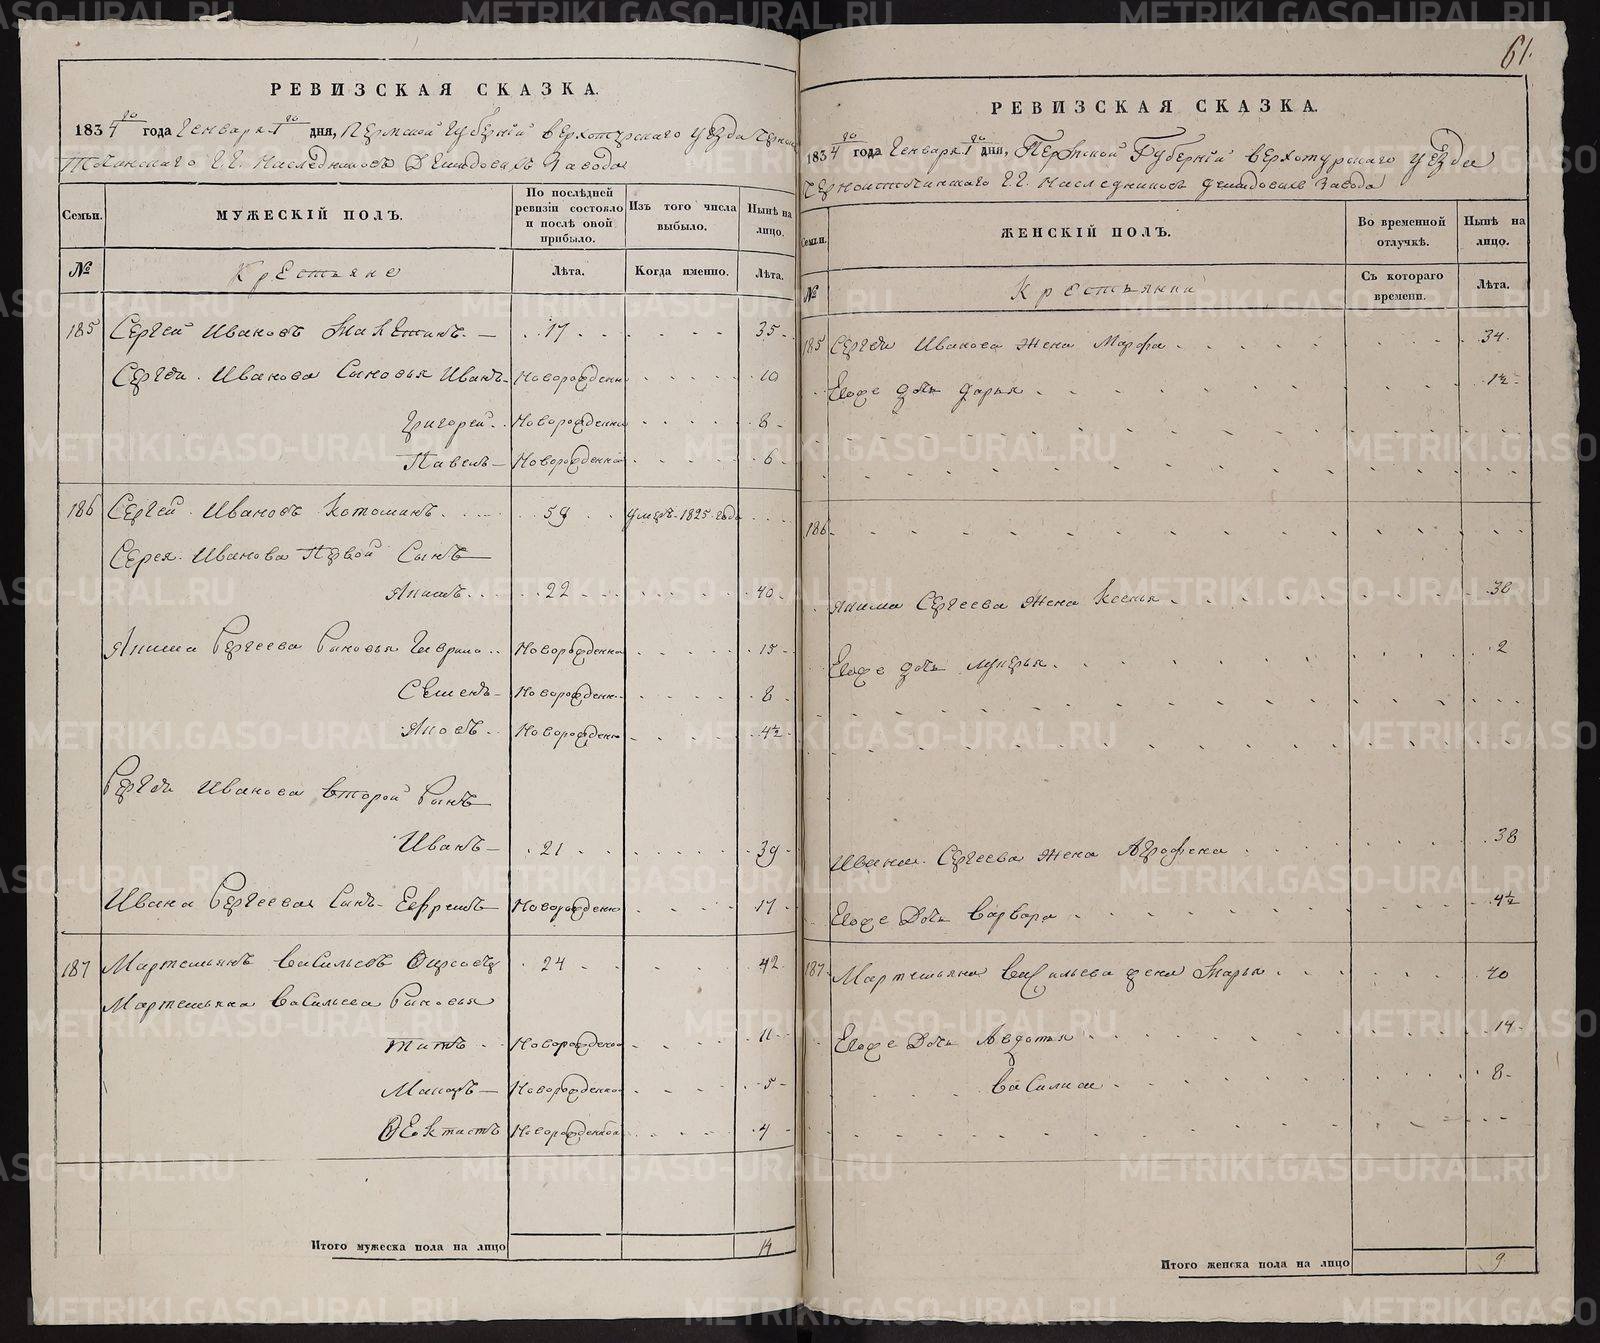 61.
РЕВИЗСКАЯ СКАЗКА.
1834го года Генваря 1го дня, Пермской Губерніи Верхотурскаго уѣзда Черно
источинскаго Г.Г. Наслѣдниковъ Демидовыхъ Завода
Семьи.
МУЖЕСКІЙ ПОЛЪ.
По послѣдней ревизіи состояло и послѣ оной прибыло.
Изъ того числа выбыло.
Нынѣ на лицо.
№
Крестьяне
Лѣта.
Когда именно.
Лѣта.
185 Сергей Ивановъ 17 35
Сергея Иванова Сыновья Иванъ Новорожденни 10
Григорей Новорожденна 8
Павелъ Новорожденной 6
186 Сергей Ивановъ Котоминъ 59 умеръ 1825 года
Серея Иванова Первой Сынъ
Акимъ 22 40
Акима Сергеева Сыновья Гаврило Новорожденно 15
Семенъ Новорожден 8
Яковъ Новорожденно 4½
Сергея Иванова Второй Сынъ
Иванъ 21 39
Ивана Сергеева Сынъ Ефремъ Новорожденно 17
187 Мартемьянъ Васильевъ 24 42
Мартемьяна Васильева Сыновья
Титъ Новорожденной 11
Новорожденно 5
Феоктистъ Новорожденной 4
Итого мужеска пола на лицо 14
РЕВИЗСКАЯ СКАЗКА.
1834го года Генваря 1го дня, Пермской Губерніи Верхотурскаго уѣзда
Черноисточинскаго Г.Г. Наследниковъ Демидовыхъ Завода
Семьи.
ЖЕНСКІЙ ПОЛЪ.
Во временной отлучкѣ.
Нынѣ на лицо.
№
Крестьянки
Съ котораго времени.
Лѣта.
185 Сергея Иванова жена Марфа 34
Еогже дочь Дарья 1½
186
Акима Сергеева жена Ксенья 38
Еогже дочь Лукерья 2
Ивана Сергеева жена Аграфена 38
Еогже Дочь Варвара 4½
187 Мартемьяна Васильева жена Марья 40
Еогже Дочь Авдотья 14
Василиса 8
Итого женска пола на лицо 9
METRIKI.GASO-URAL.RU